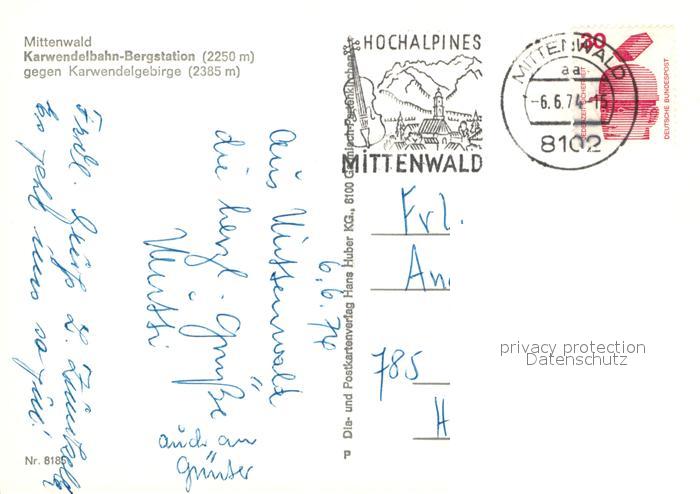 Mittenwald
Karwendelbahn-Bergstation (2250 m)
gegen Karwendelgebirge (2385 m)
HOCHALPINES
MITTENWALD
MITTENWALD
aa
-6.6.74-15
8102
30
DEUTSCHE BUNDESPOST
6.6.74
Aus Mittenwald
die herzl. Grüße
Mutti
auch an
Günter
Frdl. Gruß
Es geht uns so gut!
Frl.
An
785
H
privacy protection
Datenschutz
Dia- und Postkartenverlag Hans Huber KG., 8100 Garmisch-Partenkirchen
P
Nr. 8185